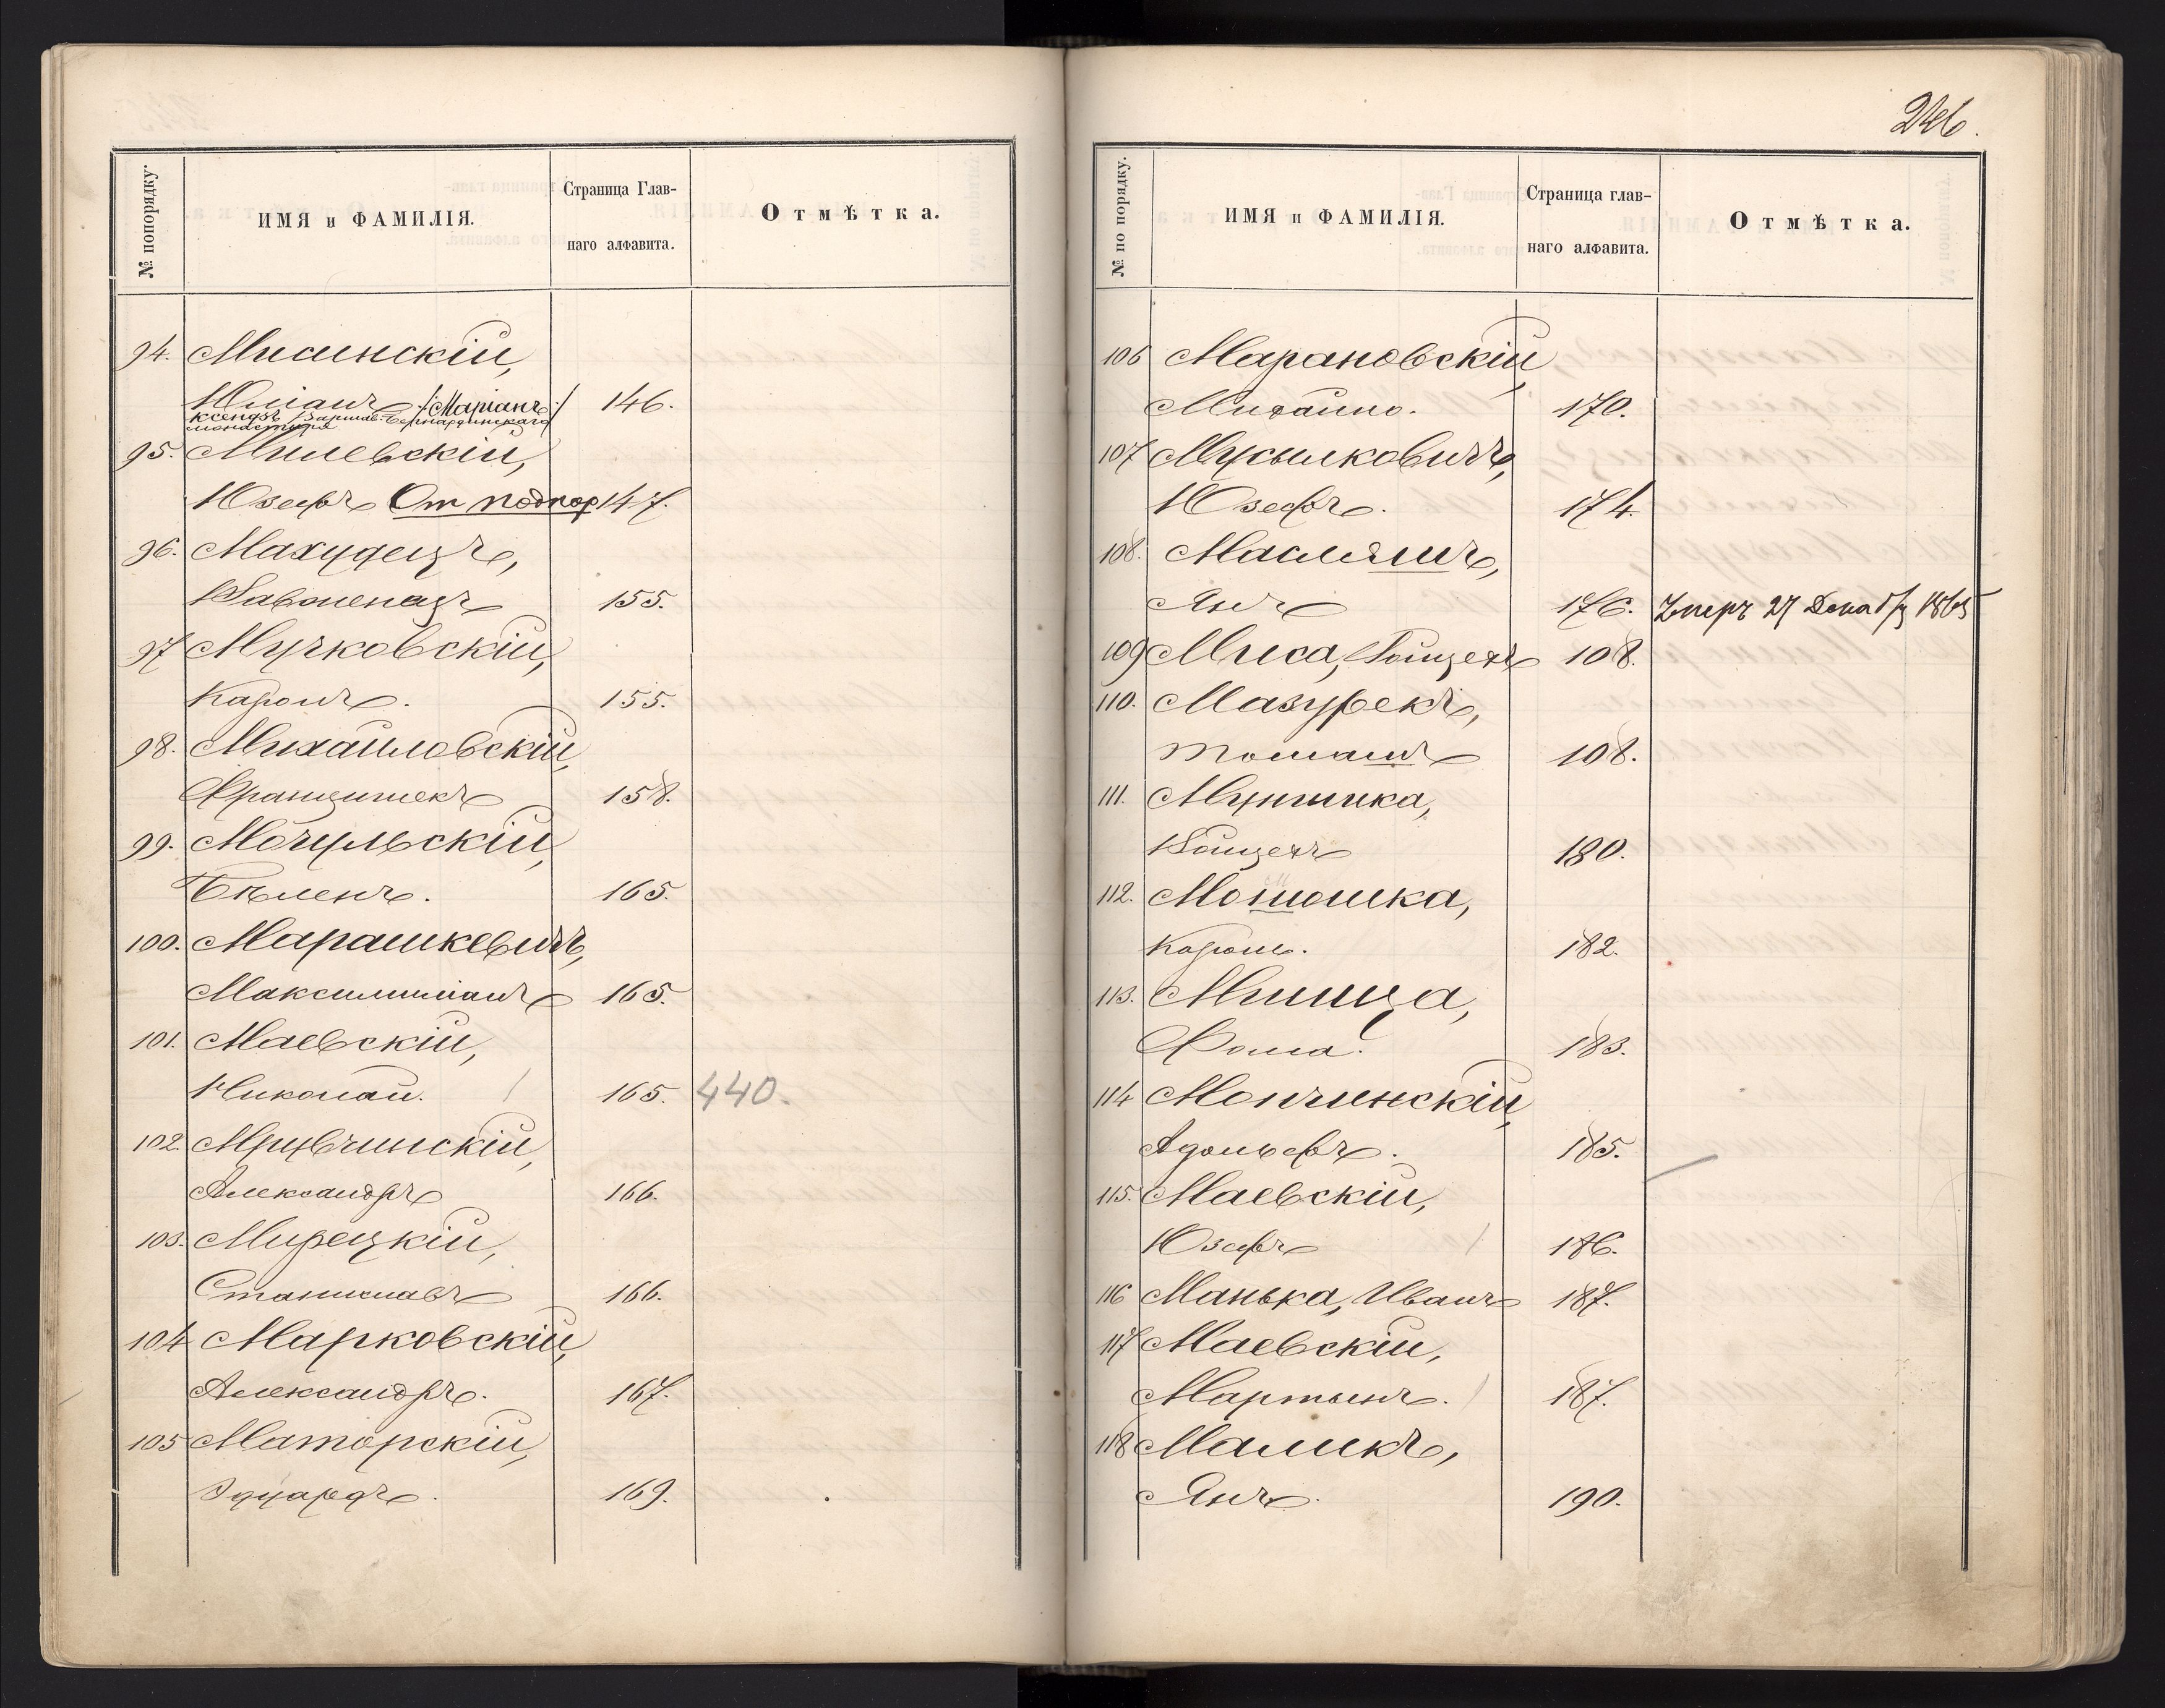 № попорядку.
ИМЯ и ФАМИЛІЯ.
Страница Глав-
наго алфавита.
Отмѣтка.
94. Мисинскій,
Юліанъ /Маріанъ/ 146.
ксендзъ Варшав. Бернардинскаго
монастыря
95. Милевскій,
Юзефъ От подпор 147.
96. Махудецъ,
155.
97 Мучковскій,
Кароль. 155.
98. Михайловскій,
Францишекъ 158.
99. Мочульскій,
165.
100. Марашкевичъ,
Максимиліанъ 165.
101. Маевскій,
Николай. 165. 440.
102. Мрувчинскій,
Александръ 166.
103. Мирецкій,
Станиславъ 166.
104 Марковскій,
Александръ. 167.
105 Маторскій,
Эдуардъ. 169.
246.
№ по порядку.
ИМЯ и ФАМИЛІЯ.
Страница глав-
наго алфавита.
Отмѣтка.
106 Марановскій,
170.
107 Мусылковичъ,
Юзефъ. 174.
108. Маслянъ,
Янъ 176. Умеръ 27 Декабр 1865
109 Миса, Войцехъ 108.
110. Мазурекъ,
Томашъ 108.
111. Мушинка,
Войцехъ 180.
112. Мотошка,
Кароль. 182.
113. Миница,
Фома. 183.
114 Мончинскій,
Адольфъ. 185.
115. Маевскій,
Юзефъ 186.
116 Манька, Иванъ 187.
117 Маевскій,
Мартынъ. 187.
118 Маликъ,
Янъ. 190.